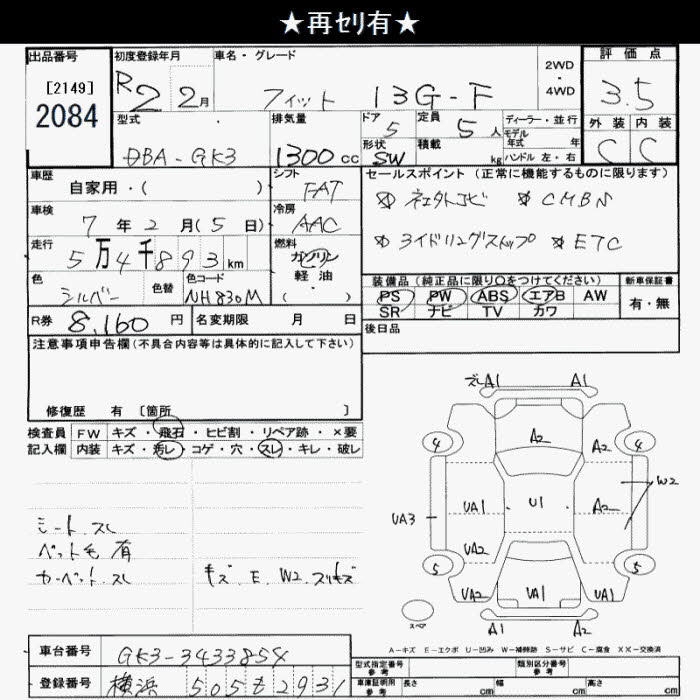 ★再ｾﾘ有★
出品番号 初度登録年月 車名・グレード 2WD ・ 4WD 評価点
[2149] R2 2月 フィット 13G-F 3.5
2084
型式 排気量 ドア 定員 ディーラー・並行 外装 内装
5 5人 モデル年式 年式
DBA-GK3 1300cc 形状 積載 C C
SW kg ハンドル 左・右
車歴 シフト セールスポイント(正常に機能するものに限ります)
自家用・( ) FAT
車検 冷房 CMBS
7年2月(5日) AAC
走行 燃料 ETC
5万4千893km ガソリン
色 色替 色コード 軽油 装備品(純正品に限り○をつけてください) 新車保証書
シルバー NH830M ( ) PS PW ABS エアB AW 有・無
R券 8,160円 名変期限 月 日 SR ナビ TV カワ
後日品
注意事項申告欄(不具合内容等は具体的に記入して下さい)
修復歴 有 [箇所 ]
検査員 FW キズ・飛石・ヒビ割・リペア跡・×要
記入欄 内装 キズ・汚レ・コゲ・穴・スレ・キレ・破レ
シート、スレ
ペット毛 有
カーペット、スレ キズ、E、W2、スリキズ
ズレA1 A1
4 A2 A2 4
W2
UA3 UA1 U1 A2
UA2
5 5
UA2 UA1 UA1
スペア A1 A2
A-キズ E-エクボ U-凹み W-補修跡 S-サビ C-腐食 XX-交換済
車台番号 GK3-3433854
登録番号 横浜 505 せ 2931
型式指定番号 参考 類別区分番号 参考
車庫証明用 参考 長さ cm 幅 cm 高さ cm